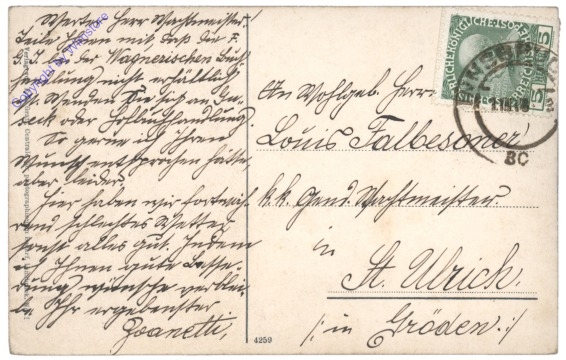 Werter Herr Wachtmeister!
Teile Ihnen mit, daß die F.
G. J. in der Wagnerischen Buch
handlung nicht erhältlich
ist. Wenden Sie sich an
oder Hofbuchhandlung
So gerne ich Ihren
Wunsch entsprochen hätte,
aber leider.
Hier haben wir fortwäh
rend schlechtes Wetter
sonst alles gut. Indem
ich Ihnen gute Besse-
rung wünsche verblei
be Ihr ergebenster
Zoanetti,
An Wohlgeb. Herrn
Louis Falbesoner
k. k. Gend. Wachtmeister
in
St. Ulrich
/: in Gröden :/
4259
INNSBRUCK
8C
5